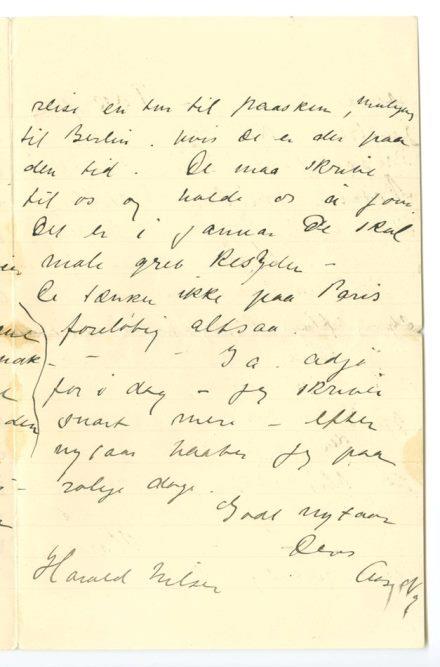 reise en tur til paasken, muligens
til Berlin. hvis De er der paa
den tid. De maa skrive
til os og holde os à jour.
Det er i januar De skal
male grev Kessler –
De tænker ikke paa Paris
foreløbig altsaa.
– – – Ja. adjø
for i dag – jeg skriver
snart mere – efter
nytaar haaber jeg paa
rolige dage.
Godt nytaar
Deres
Harald